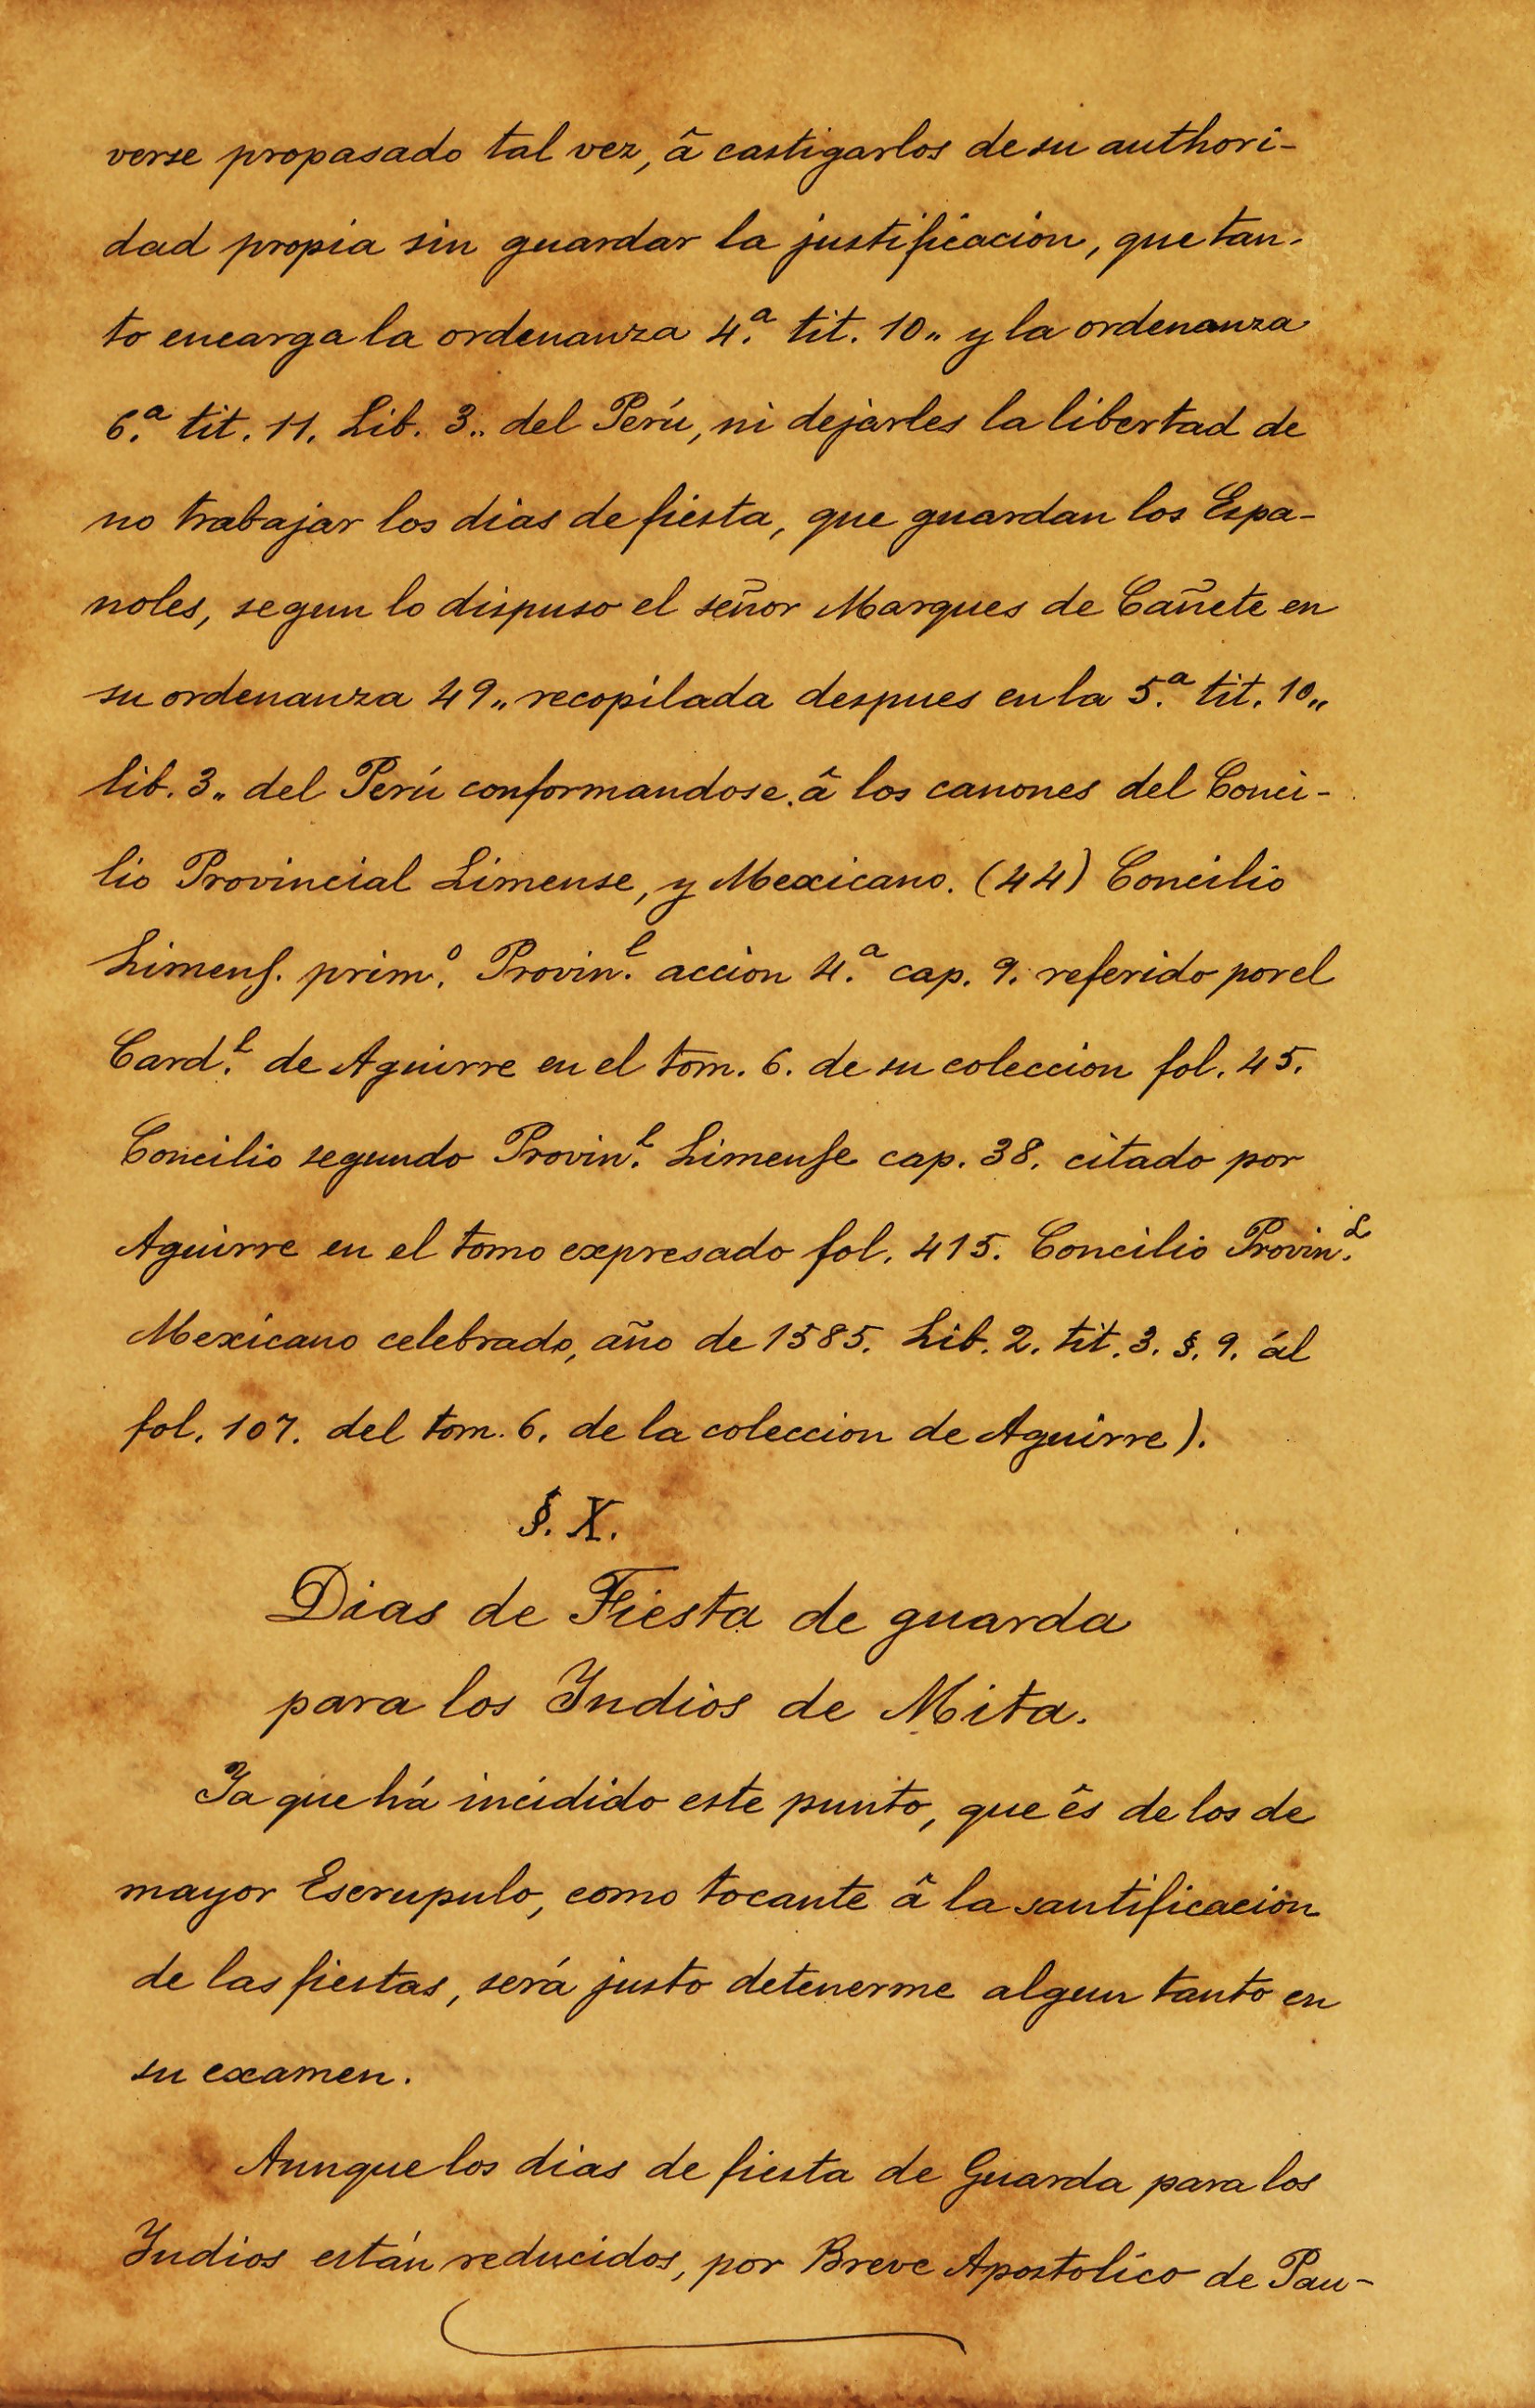 verse propasado tal vez, â castigarlos de su authori-
dad propia sin guardar la justificacion, que tan-
to encarga la ordenanza 4.ª tit. 10,, y la ordenanza
6.ª tit. 11. Lib. 3,, del Perú, ni dejarles la libertad de
no trabajar los dias de fiesta, que guardan los Espa-
noles, segun lo dispuso el señor Marques de Cañete en
su ordenanza 49,, recopilada despues en la 5.ª tit. 10,,
lib. 3,, del Perú conformandose â los canones del Conci-
lio Provincial Limense, y Mexicano. (44) Concilio
Limens. prim.º Provin.l accion 4.ª cap. 9. referido por el
Card.l de Aguirre en el tom. 6. de su coleccion fol. 45.
Concilio segundo Provin.l Limense cap. 38. citado por
Aguirre en el tomo expresado fol. 415. Concilio Provin.l
Mexicano celebrado, año de 1585. Lib. 2. tit. 3. §. 9. ál
fol. 107. del tom. 6. de la coleccion de Aguirre).
§. X.
Dias de Fiesta de guarda
para los Indios de Mita.
Ya que há incidido este punto, que ês de los de
mayor Escrupulo, como tocante â la santificacion
de las fiestas, será justo detenerme algun tanto en
su examen.
Aunque los dias de fiesta de Guarda para los
Indios están reducidos, por Breve Apostolico de Pau-